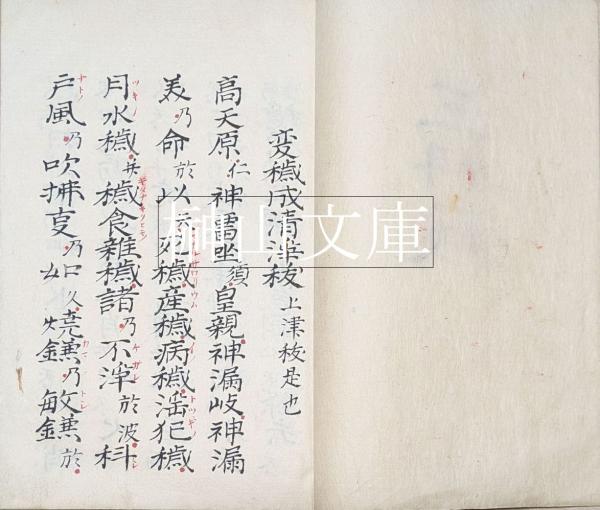 変穢成清浄秡 上津秡是也
高天原仁神留坐須皇親神漏岐神漏
美乃命於以弖死穢産穢病穢淫犯穢
月水穢并穢食雜穢諸乃不浄於波科
戸風乃吹拂事乃如久焼鎌乃敏鎌於
榊山文庫